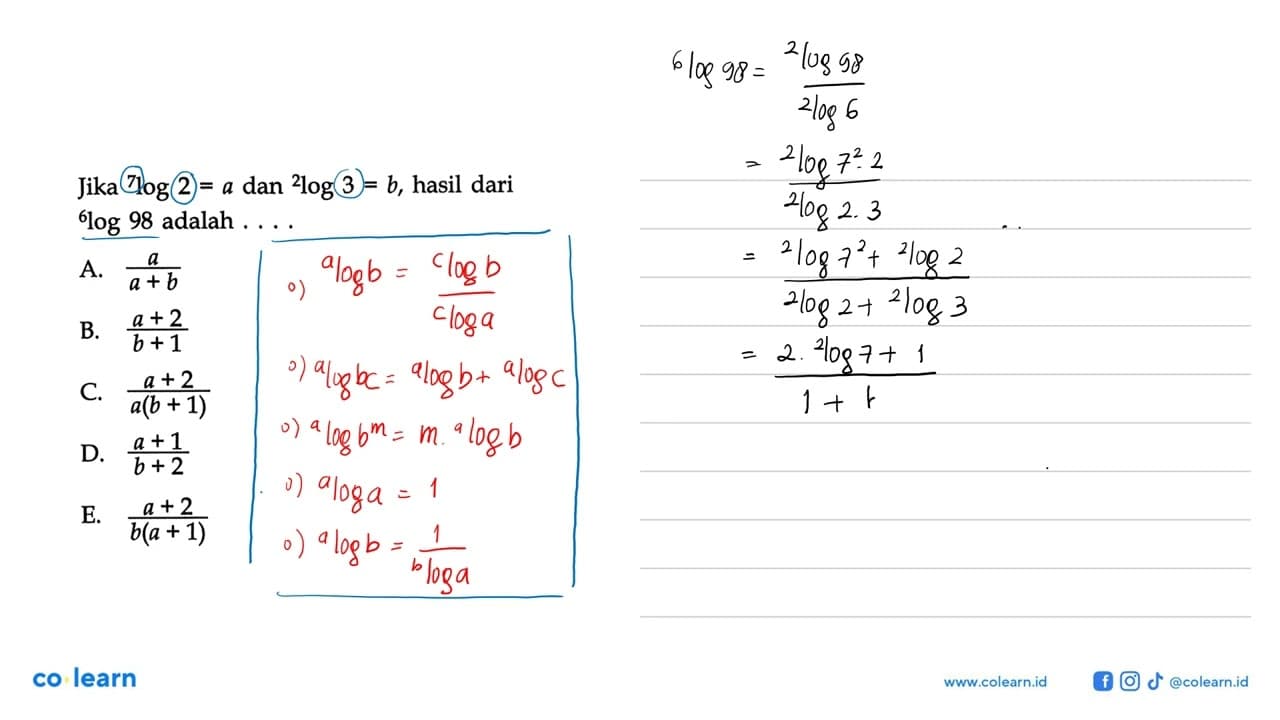 Jika ⁷log 2 = a dan ²log 3 = b, hasil dari
⁶log 98 adalah . . . .
A. a/(a + b)
B. (a + 2)/(b + 1)
C. (a + 2)/(a(b + 1))
D. (a + 1)/(b + 2)
E. (a + 2)/(b(a + 1))
o) ᵃlog b = ᶜlog b / ᶜlog a
o) ᵃlog bc = ᵃlog b + ᵃlog c
o) ᵃlog bᵐ = m. ᵃlog b
o) ᵃlog a = 1
o) ᵃlog b = 1 / ᵇlog a
⁶log 98 = ²log 98 / ²log 6
= ²log 7². 2 / ²log 2. 3
= (²log 7² + ²log 2) / (²log 2 + ²log 3)
= (2. ²log 7 + 1) / (1 +
co learn
www.colearn.id
@colearn.id